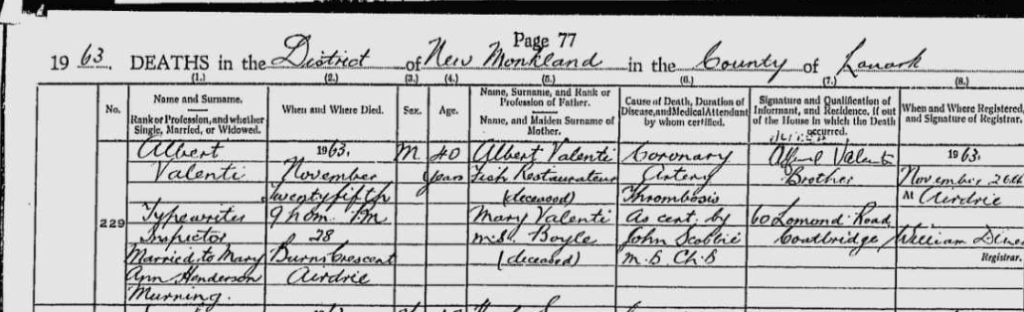 Page 77
1963. DEATHS in the District of New Monkland in the County of Lanark
(1.) (2.) (3.) (4.) (5.) (6.) (7.) (8.)
No.
Name and Surname.
Rank or Profession, and whether
Single, Married, or Widowed.
When and Where Died.
Sex.
Age.
Name, Surname, and Rank or
Profession of Father.
Name, and Maiden Surname of
Mother.
Cause of Death, Duration of
Disease, and Medical Attendant
by whom certified.
Signature and Qualification of
Informant, and Residence, if out
of the House in which the Death
occurred.
When and Where Registered,
and Signature of Registrar.
229
Albert
Valenti
Typewriter
Inspector
Married to Mary
Ann Henderson
Murning.
1963.
November
Twentyfifth
9h 0m. P.M.
28
Burns Crescent
Airdrie
M
40
years
Albert Valenti
Fish Restaurateur
(deceased)
Mary Valenti
m.s. Boyle
(deceased)
Coronary
Artery
Thrombosis
As cert. by
John Scobbie
M.B. Ch.B
Valenti
Brother
60 Lomond Road
Coatbridge
1963.
November 26th
At Airdrie
William
Registrar.